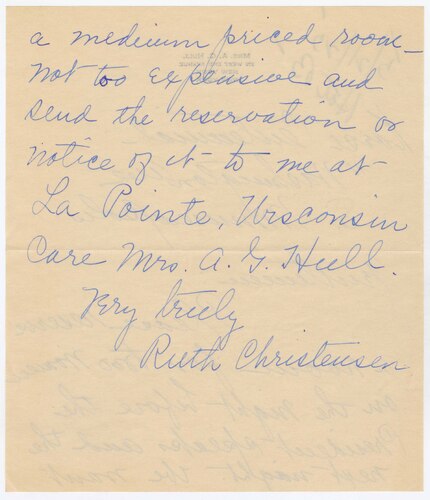 a medium priced room—
not too expensive and
send the reservation or
notice of it to me at
La Pointe, Wisconsin
Care Mrs. A. G. Hull.
Very truly
Ruth Christensen